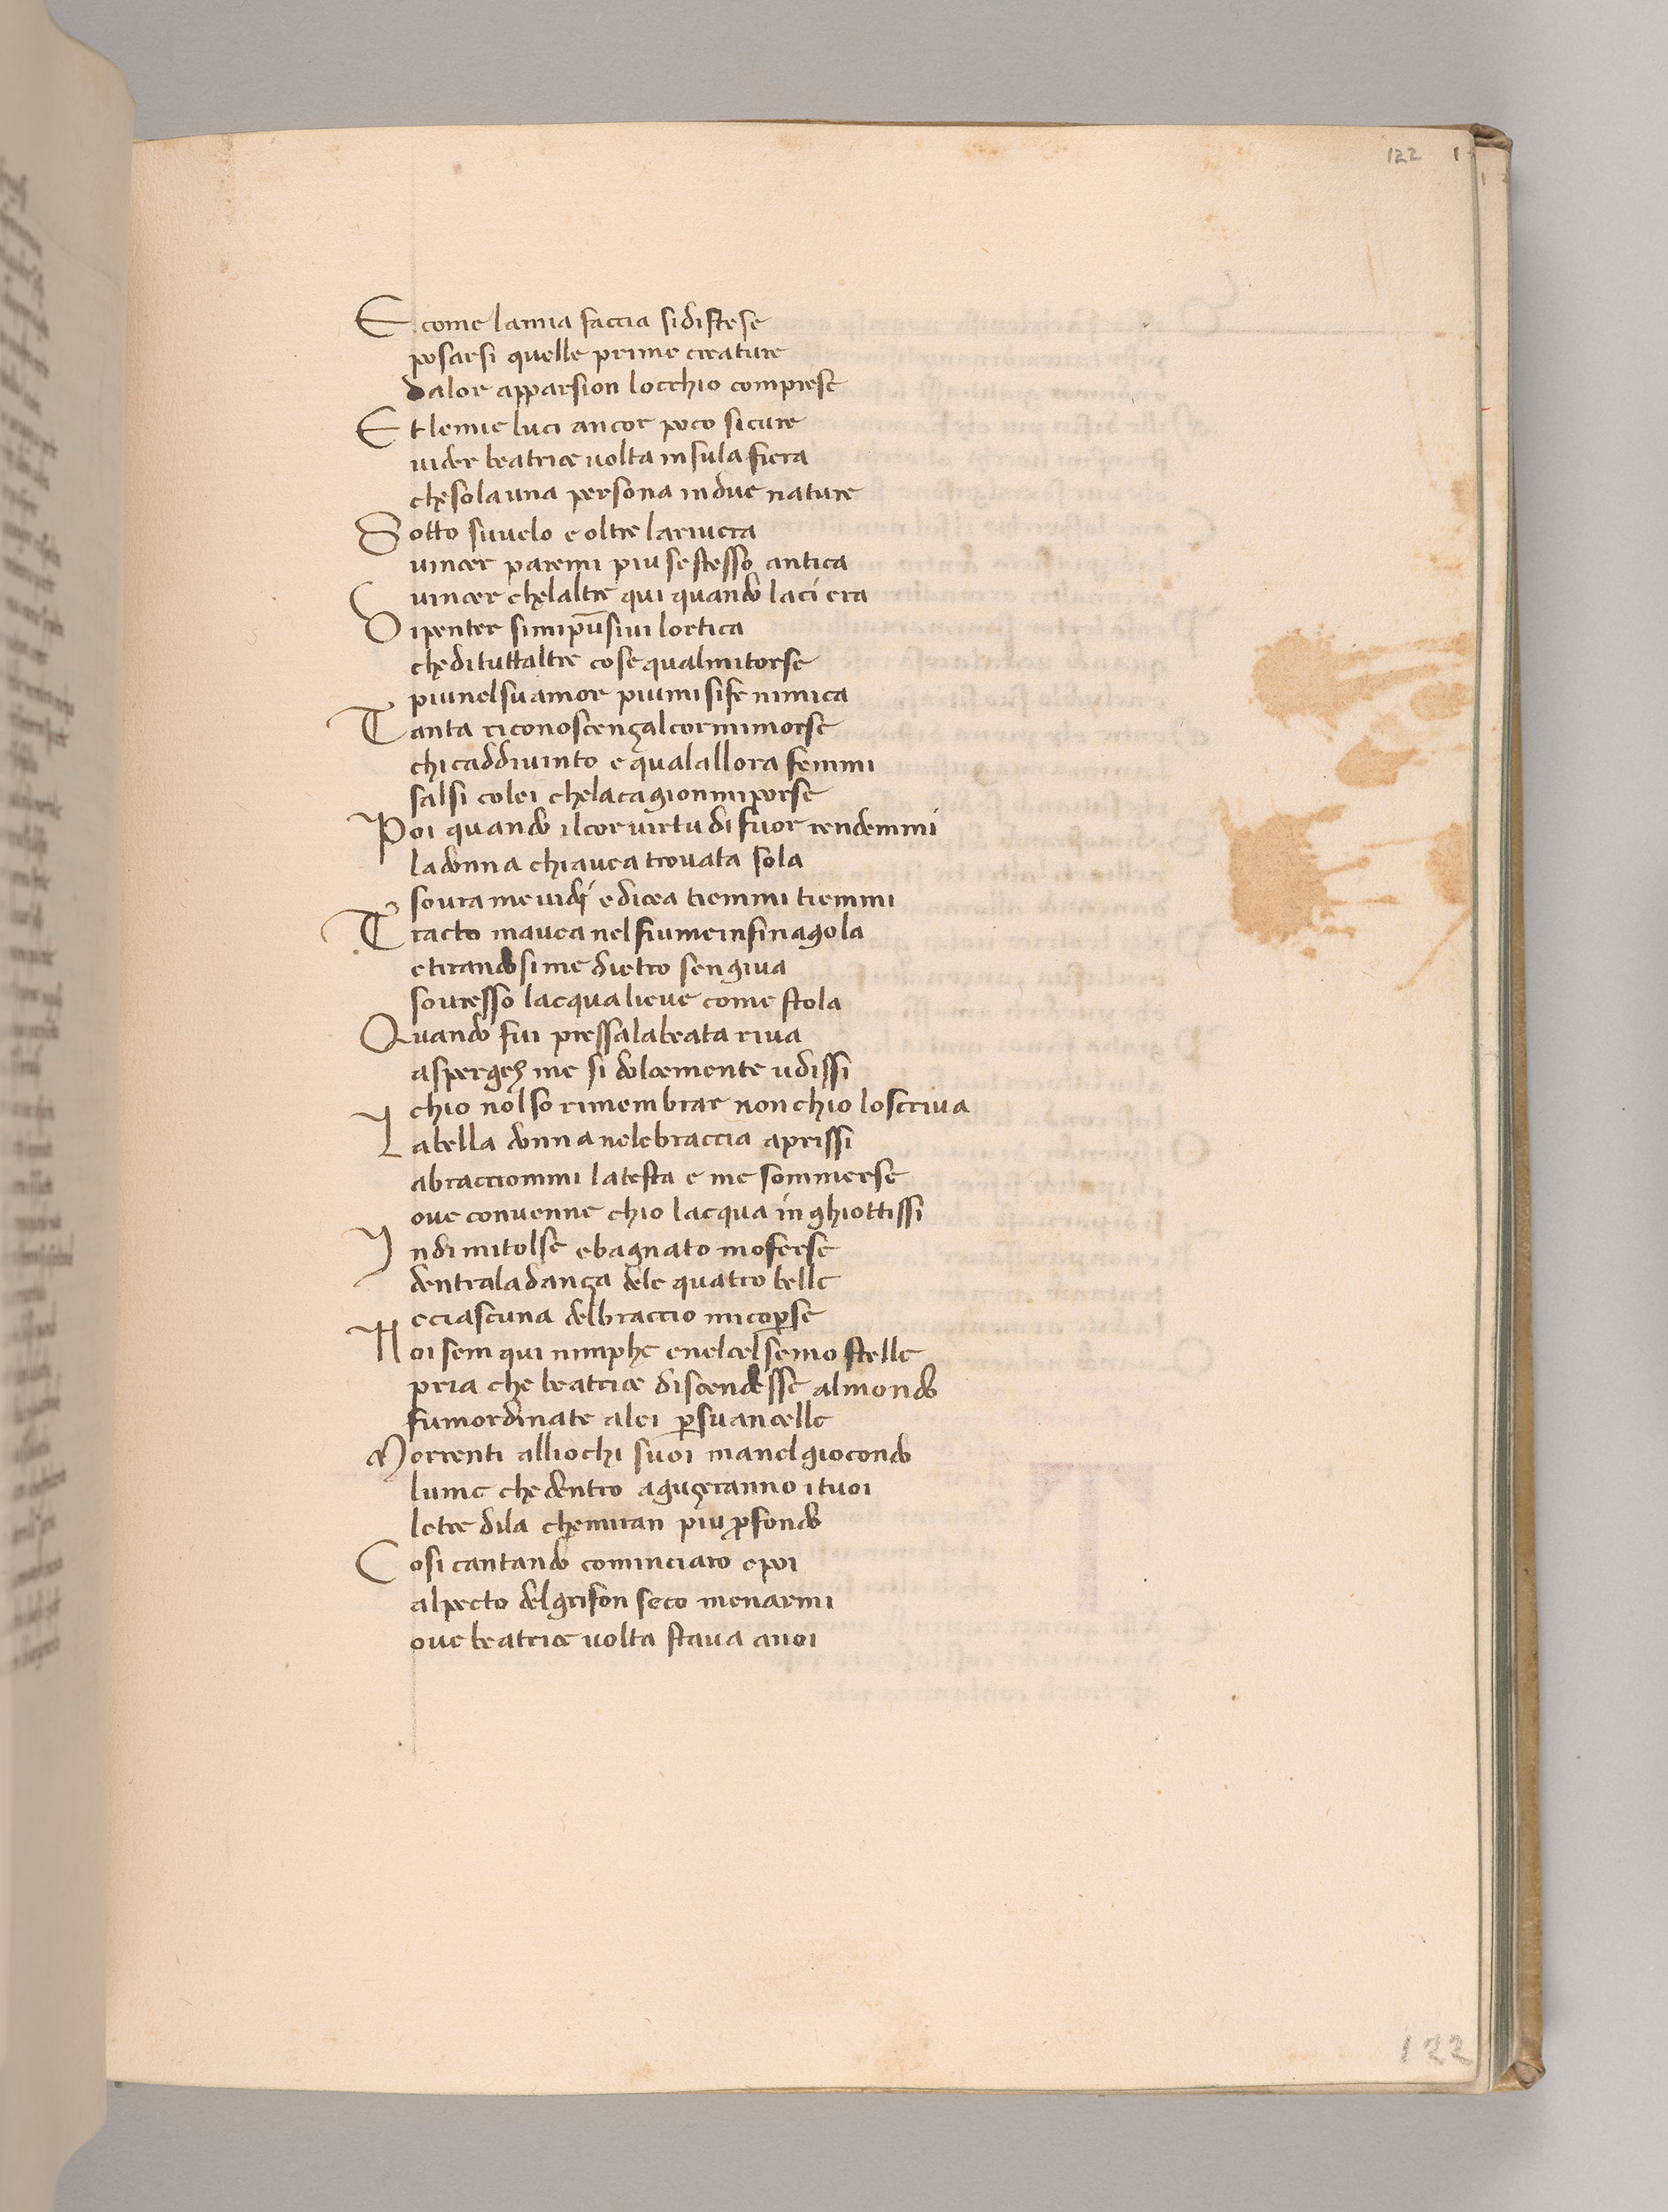 122
E come lamia faccia sidistese
posarsi quelle prime creature
dalor apparsion locchio comprese
Et lemie luci ancor poco sicure
uider beatrice uolta insula fiera
che sola una persona indue nature
Sotto suuelo e oltre lariuera
uincer paremi piu sestesso antica
uincer chelaltre qui quando laci era
Dipenter simip̄usiui lortica
che di tuttaltre cose qualmitorse
piu nelsu amor piu misife nimica
Tanta riconoscenzalcor mimorse
chicaddi uinto e qualallora femmi
salsi colei chelacagion miporse
Poi quando ilcor uirtu di fuor rendemmi
ladonna chiauea trouata sola
soura me uidi e dicea tiemmi tiemmi
Tracto mauea nel fiume infinagola
e tirandosi me dietro sengiua
souresso lacqua lieue come stola
Quando fui pressalabeata riua
asperges me si dolcemente udissi
chio nol so rimembrar non chio loscriua
Labella donna nelebraccia aprissi
abracciommi latesta e me sommerse
oue conuenne chio lacqua inghiottissi
Indi mitolse e bagnato moferse
dentraladanza dele quatro belle
e ciascuna delbraccio micoꝑse
Noi sem qui nimphe enelcielsemo stelle
pria che beatrice discendesse almondo
fumordinate alei ꝑsuancelle
Merrenti alliochi suoi manelgiocondo
lume che dentro aguzeranno i tuoi
letre dila chemiran piu ꝓfondo
Cosi cantando cominciaro epoi
alpecto delgrifon seco menarmi
oue beatrice uolta staua anoi
122